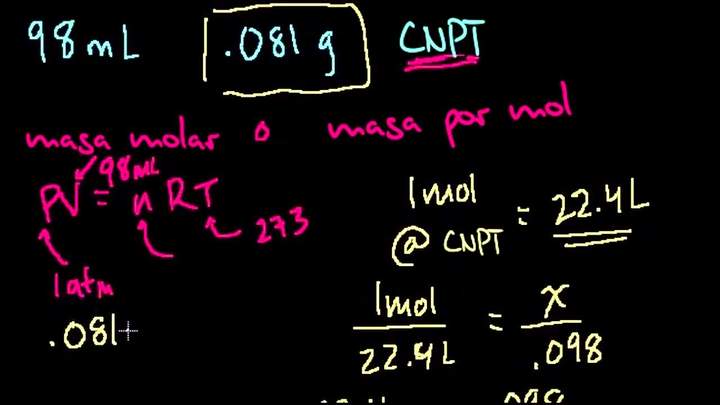 98 mL .081 g CNPT
masa molar o masa por mol
98 mL
PV = nRT
273
1 atm
.081
1 mol
@ CNPT = 22.4 L
1 mol / 22.4 L = x / .098